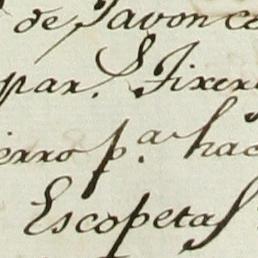 de Javon ce
par.s Tixer
ierro p.a hac
Escopetas